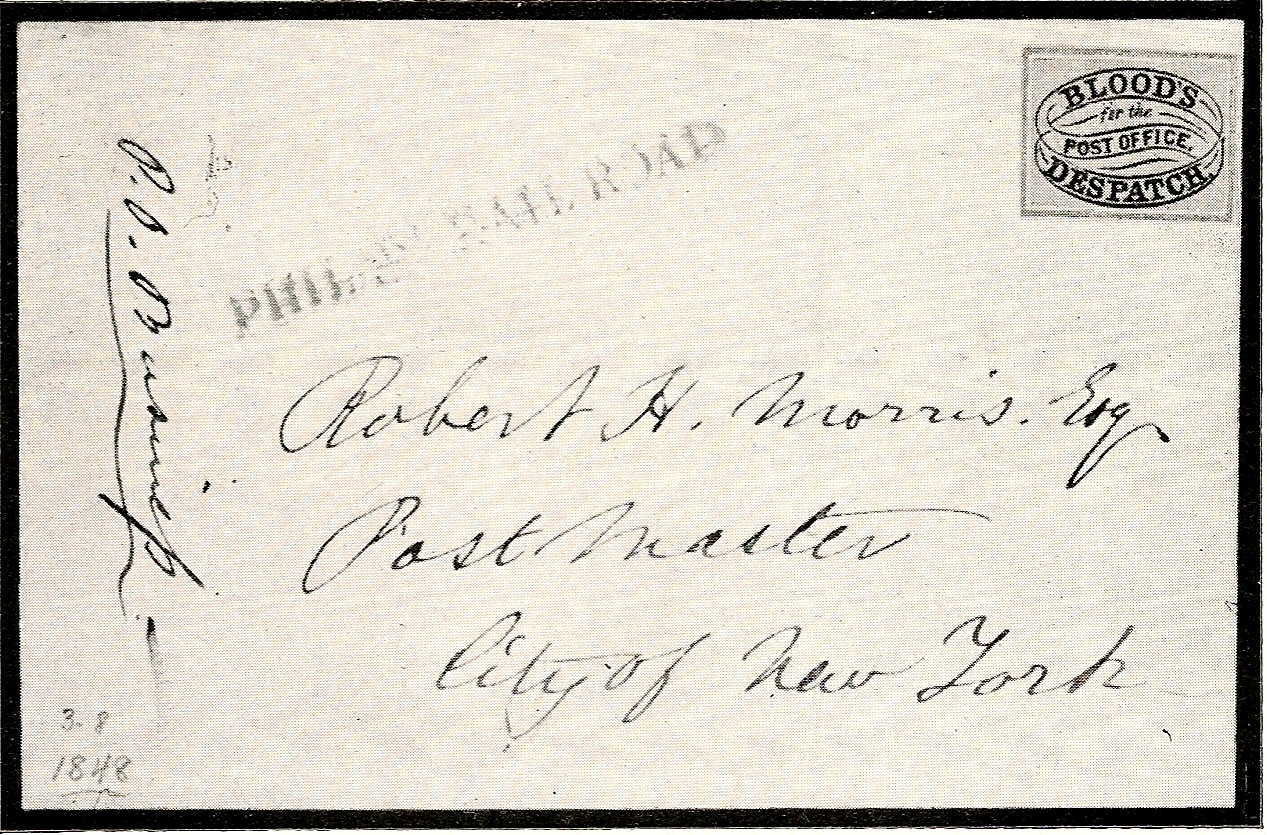 BLOOD'S
for the
POST OFFICE.
DESPATCH.
PHILA RAIL ROAD
P. O. Business
Robert H. Morris. Esq
Post Master
City of New York
3-8
1848